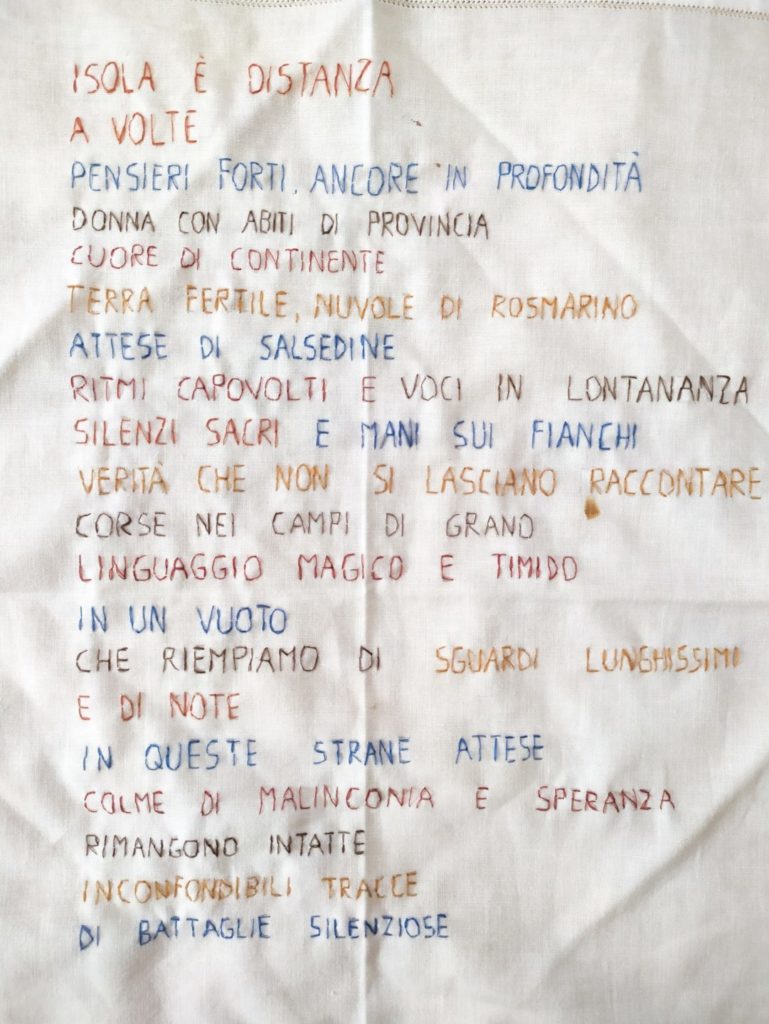 ISOLA È DISTANZA
A VOLTE
PENSIERI FORTI, ANCORE IN PROFONDITÀ
DONNA CON ABITI DI PROVINCIA
CUORE DI CONTINENTE
TERRA FERTILE, NUVOLE DI ROSMARINO
ATTESE DI SALSEDINE
RITMI CAPOVOLTI E VOCI IN LONTANANZA
SILENZI SACRI E MANI SUI FIANCHI
VERITÀ CHE NON SI LASCIANO RACCONTARE
CORSE NEI CAMPI DI GRANO
LINGUAGGIO MAGICO E TIMIDO
IN UN VUOTO
CHE RIEMPIAMO DI SGUARDI LUNGHISSIMI
E DI NOTE
IN QUESTE STRANE ATTESE
COLME DI MALINCONIA E SPERANZA
RIMANGONO INTATTE
INCONFONDIBILI TRACCE
DI BATTAGLIE SILENZIOSE